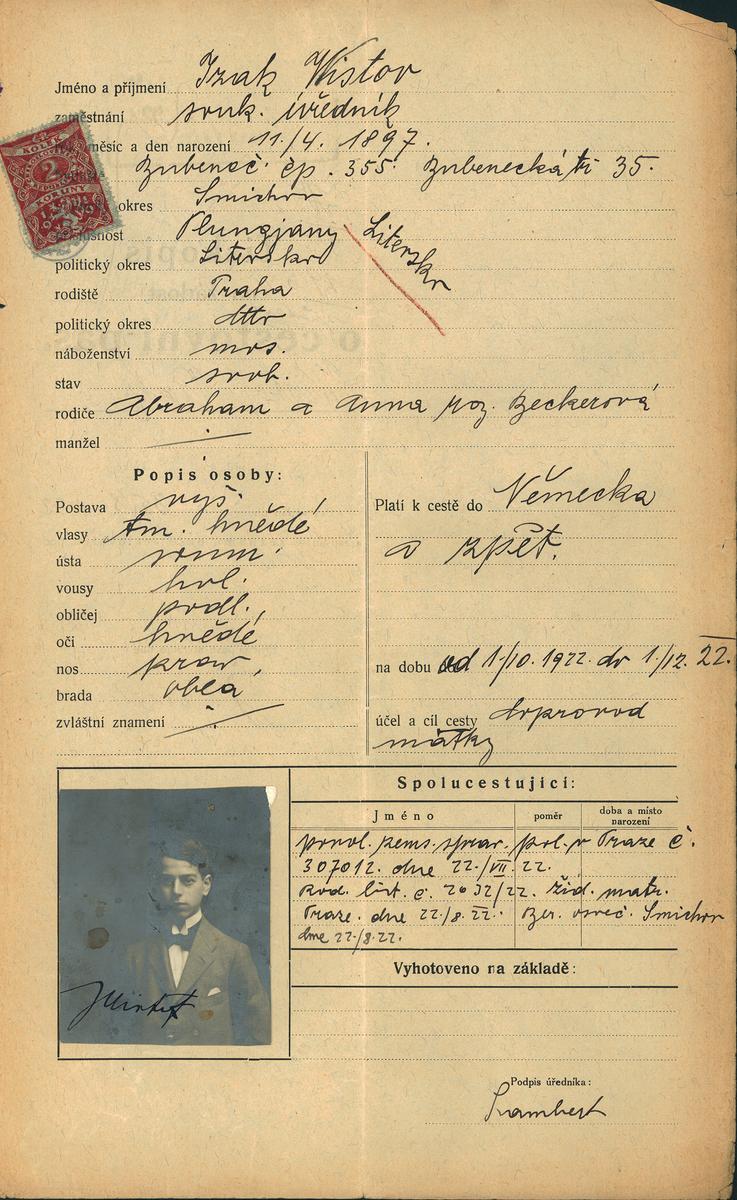 Jméno a příjmení Izak Wistov
zaměstnání souk. úředník
měsíc a den narození 11./4. 1897.
Bubeneč čp. 355. Bubenečská tř 35.
okres Smichov
Plungjany Litevsko
politický okres Litevsko
rodiště Praha
politický okres dtto
náboženství mos.
stav svob.
rodiče Abraham a Anna roz. Beckerová
manžel
Popis osoby:
Postava vyš.
vlasy tm. hnědé
ústa soum.
vousy hol.
obličej podl.
oči hnědé
nos prav.
brada oblá
zvláštní znamení
Platí k cestě do Německa
a zpět.
na dobu od 1./10. 1922. do 1./12. 22.
účel a cíl cesty doprovod
matky
Spolucestující:
Jméno poměr doba a místo narození
povol. zems. sprav. pol. v Praze č.
307012. dne 22./VII. 22.
Rod. list. č. 2032/22. žid. matr.
Praze. dne 22./8. 22. Ber. osvěč. Smichov
dne 22./8.22.
Vyhotoveno na základě:
Podpis úředníka: